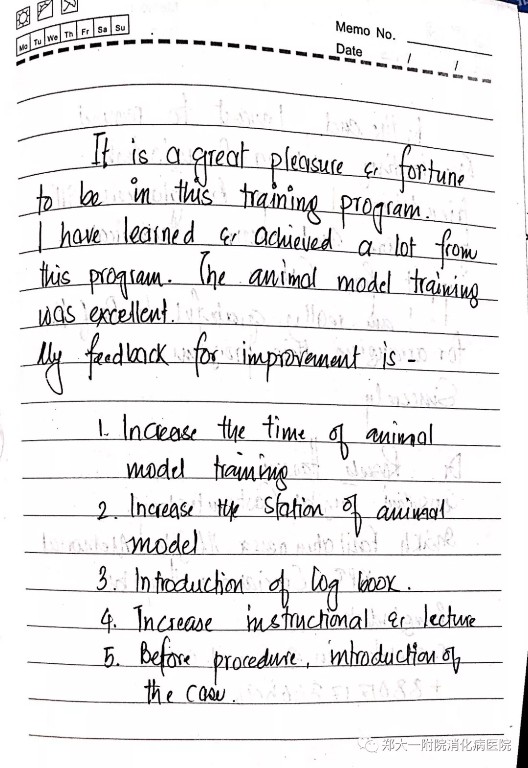 Mo Tu We Th Fr Sa Su
Memo No.
Date / /
It is a great pleasure & fortune
to be in this training program.
I have learned & achieved a lot from
this program. The animal model training
was excellent.
My feedback for improvement is -
1. Increase the time of animal
model training
2. Increase the station of animal
model
3. Introduction of log book.
4. Increase instructional & lecture
5. Before procedure, introduction of
the case.
郑大一附院消化病医院